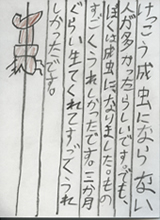 けっこう成虫にならない
人が多かったらしいです。でも、
ぼくは成虫になりました。もの
すごくうれしかったです。三か月
ぐらい生てくれてすっごくうれ
しかったです。